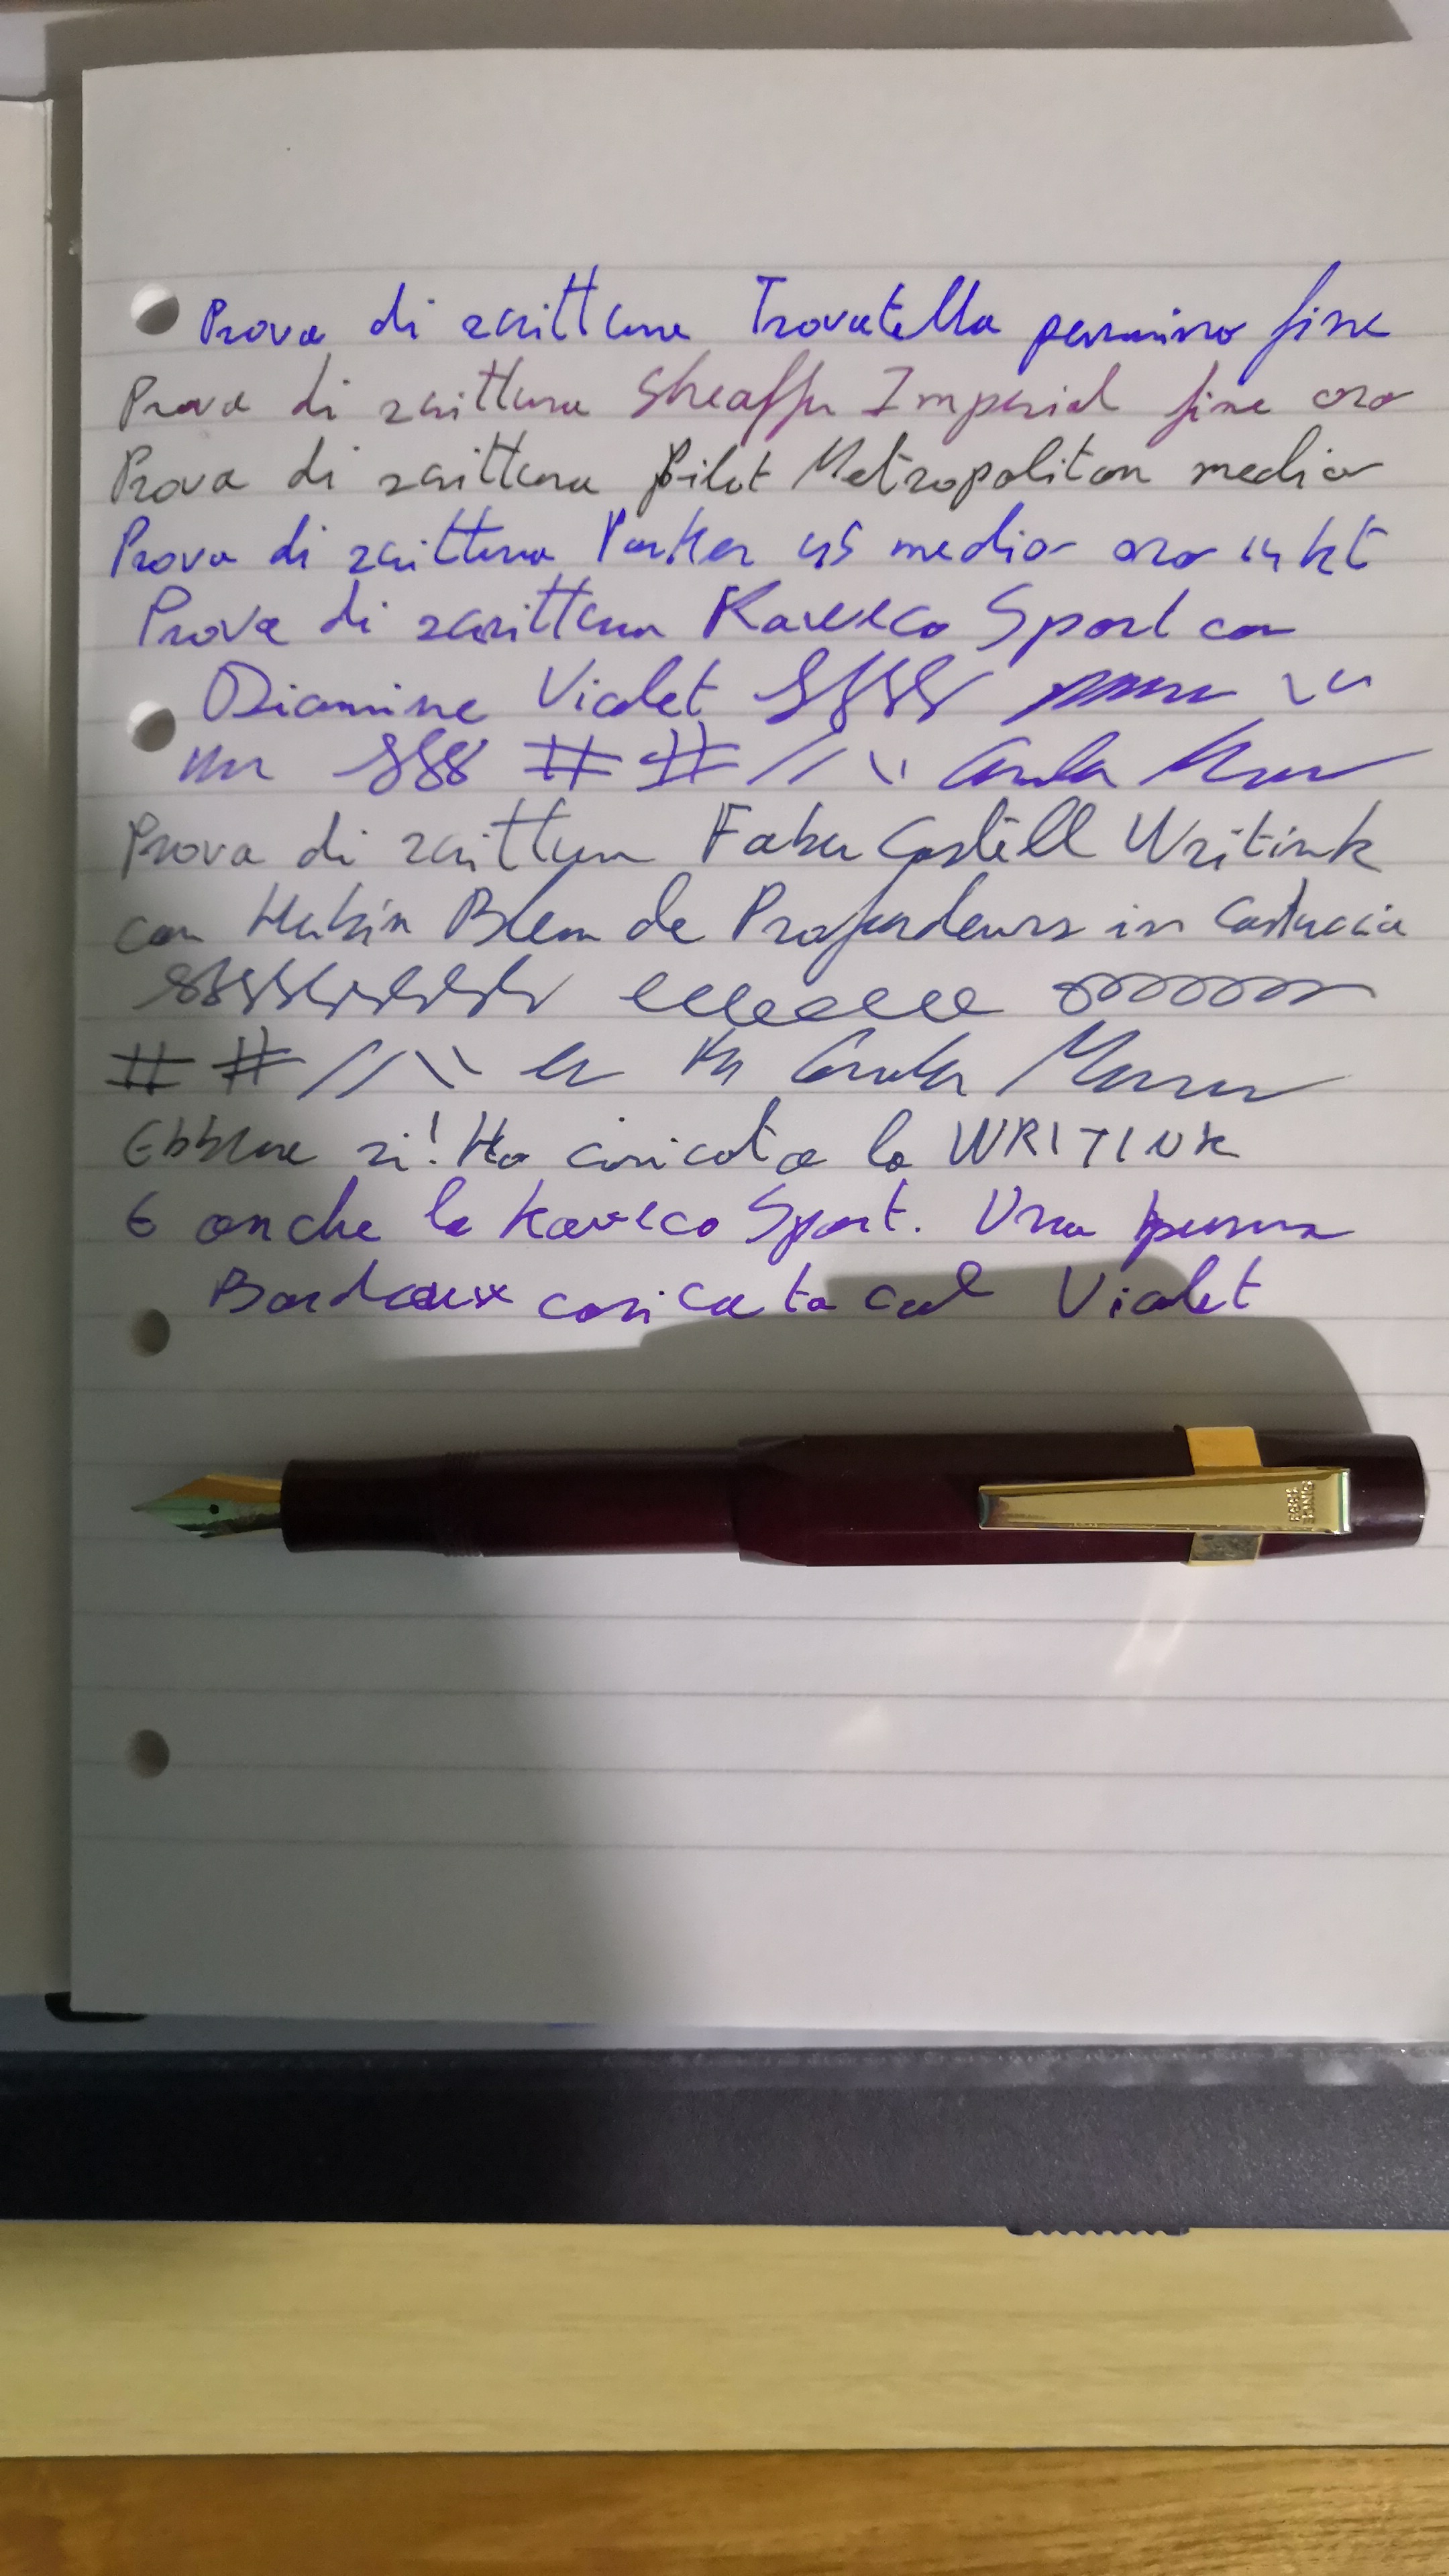 Prova di scrittura Trovatella pennino fine
Prova di scrittura Sheaffer Imperial fine oro
Prova di scrittura Pilot Metropolitan medio
Prova di scrittura Parker 45 medio oro 14kt
Prova di scrittura Kaweco Sport con
Diamine Violet
# # // \\
Prova di scrittura Faber Castell Writink
con Herbin Bleu de Profondeurs in Cartuccia
# # // \\
Ebbene si! Ho caricato la WRITINK
E anche la Kaweco Sport. Una penna
Bordeaux caricata col Violet